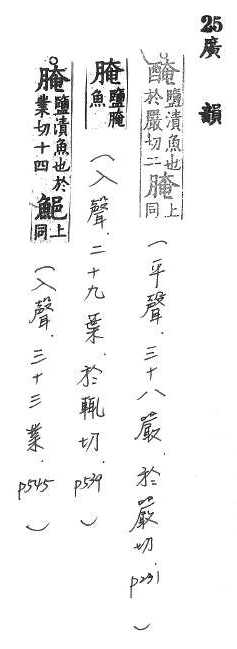 25廣韻
醃鹽漬魚也於嚴切二腌上同（平聲．三十八嚴．於嚴切．p231）
腌鹽腌魚（入聲．二十九葉．於輒切．p539）
腌鹽漬魚也於業切十四上同（入聲．三十三業．p545）